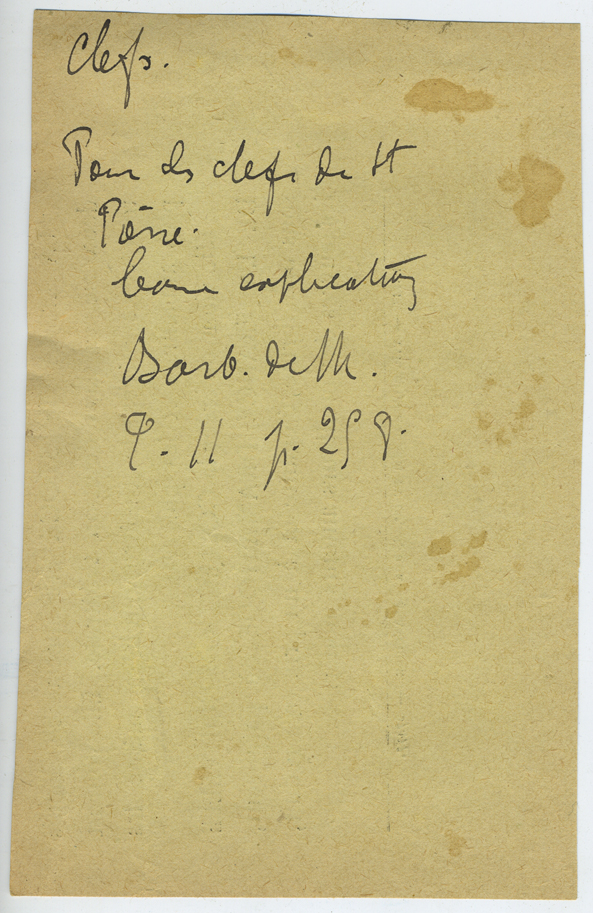 Clefs.
Pour les clefs de St
Pierre.
bonne explication
Barb. de M.
T. II p. 258.